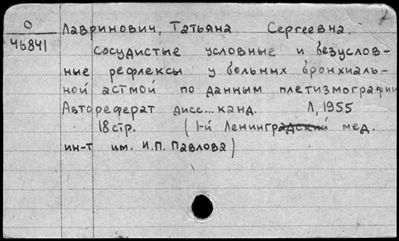 О
46841
Лавринович, Татьяна Сергеевна.
Сосудистые условные и безуслов-
ные рефлексы у больных бронхиаль-
ной астмой по данным плетизмографии
Автореферат дисс...канд. Л, 1955
18 стр. (1-й Ленинградский мед.
ин-т им. И.П. Павлова)